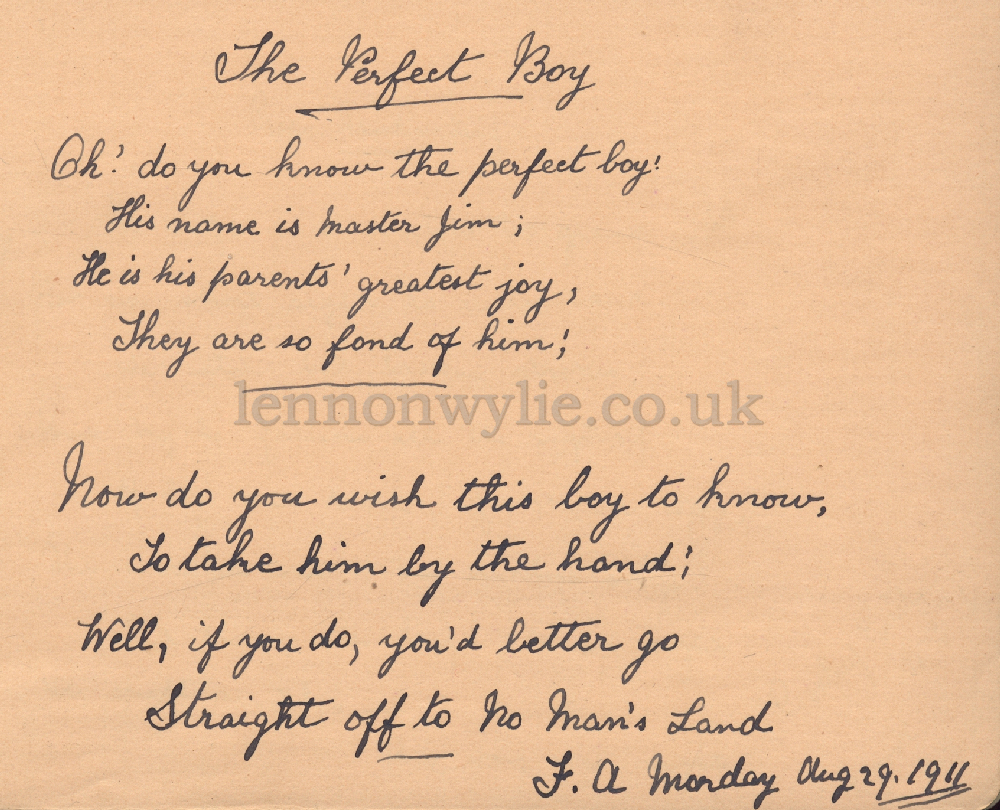 The Perfect Boy
Oh! do you know the perfect boy!
His name is Master Jim;
He is his parents' greatest joy,
They are so fond of him!
lennonwylie.co.uk
Now do you wish this boy to know,
To take him by the hand;
Well, if you do, you'd better go
Straight off to No Man's Land
F. A Monday Aug 29. 1911